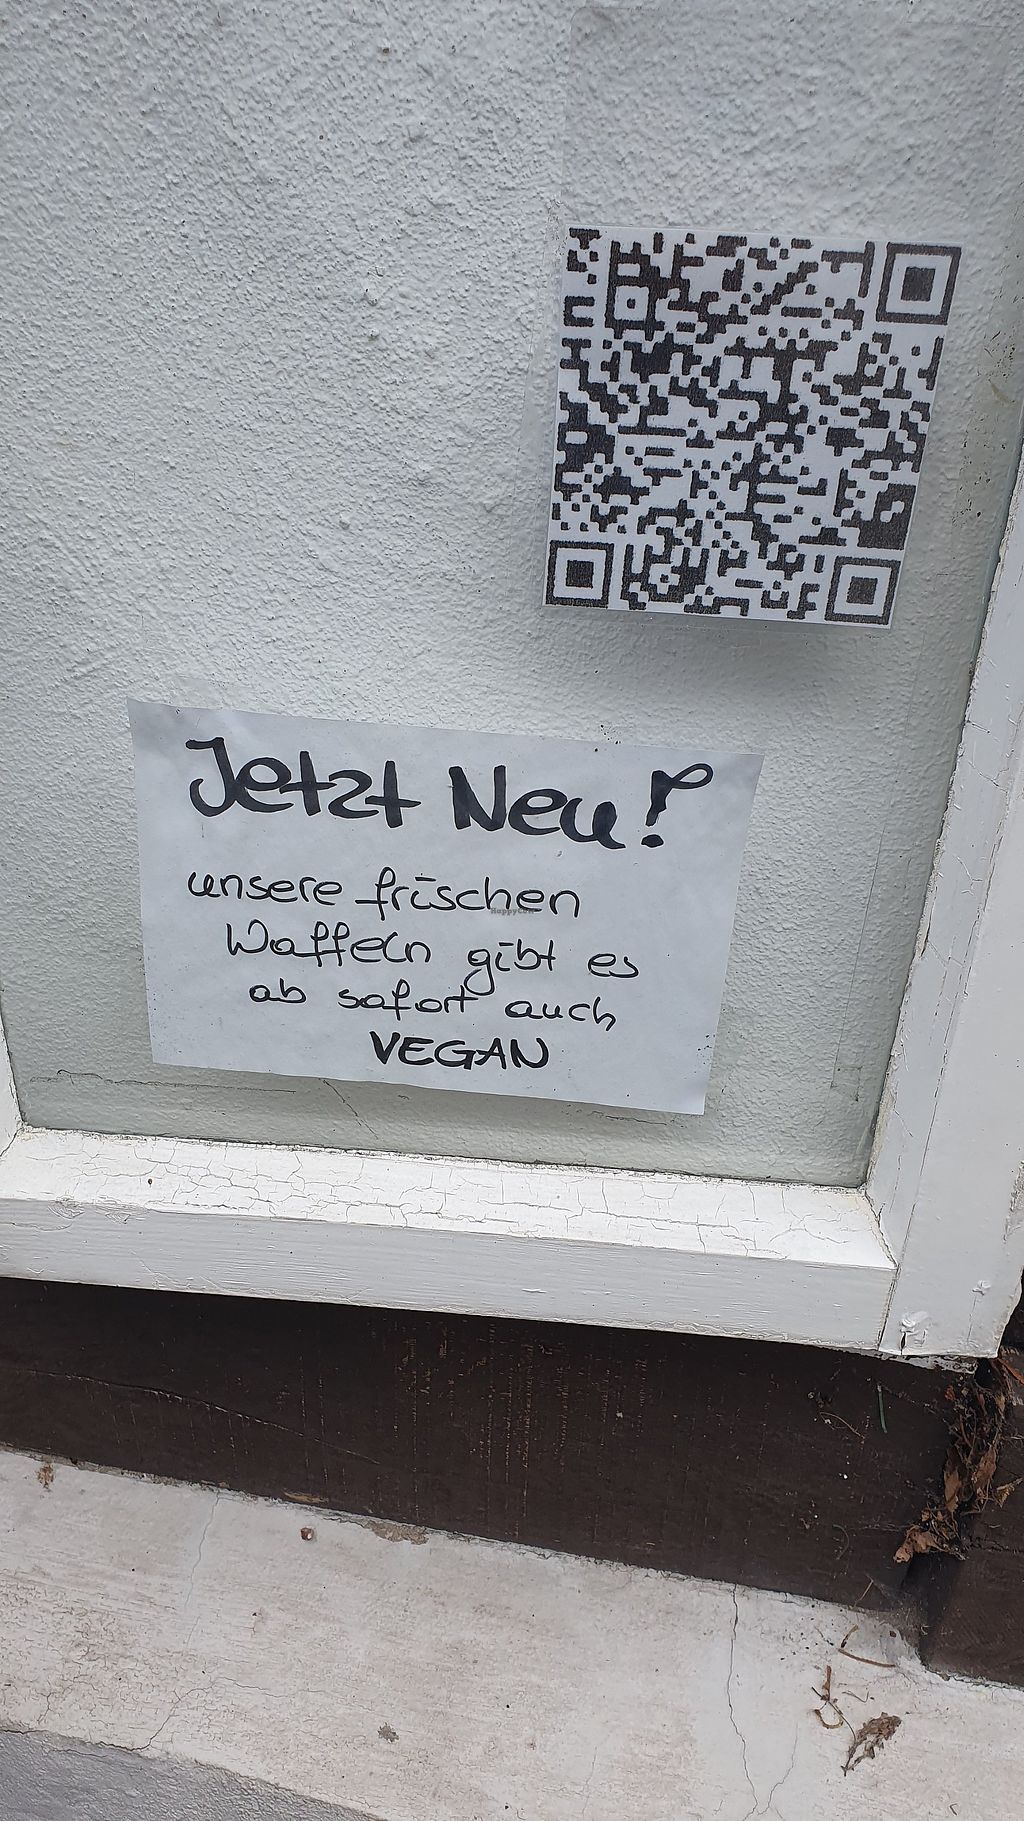 Jetzt Neu!
unsere frischen
Waffeln gibt es
ab sofort auch
VEGAN
HappyCow